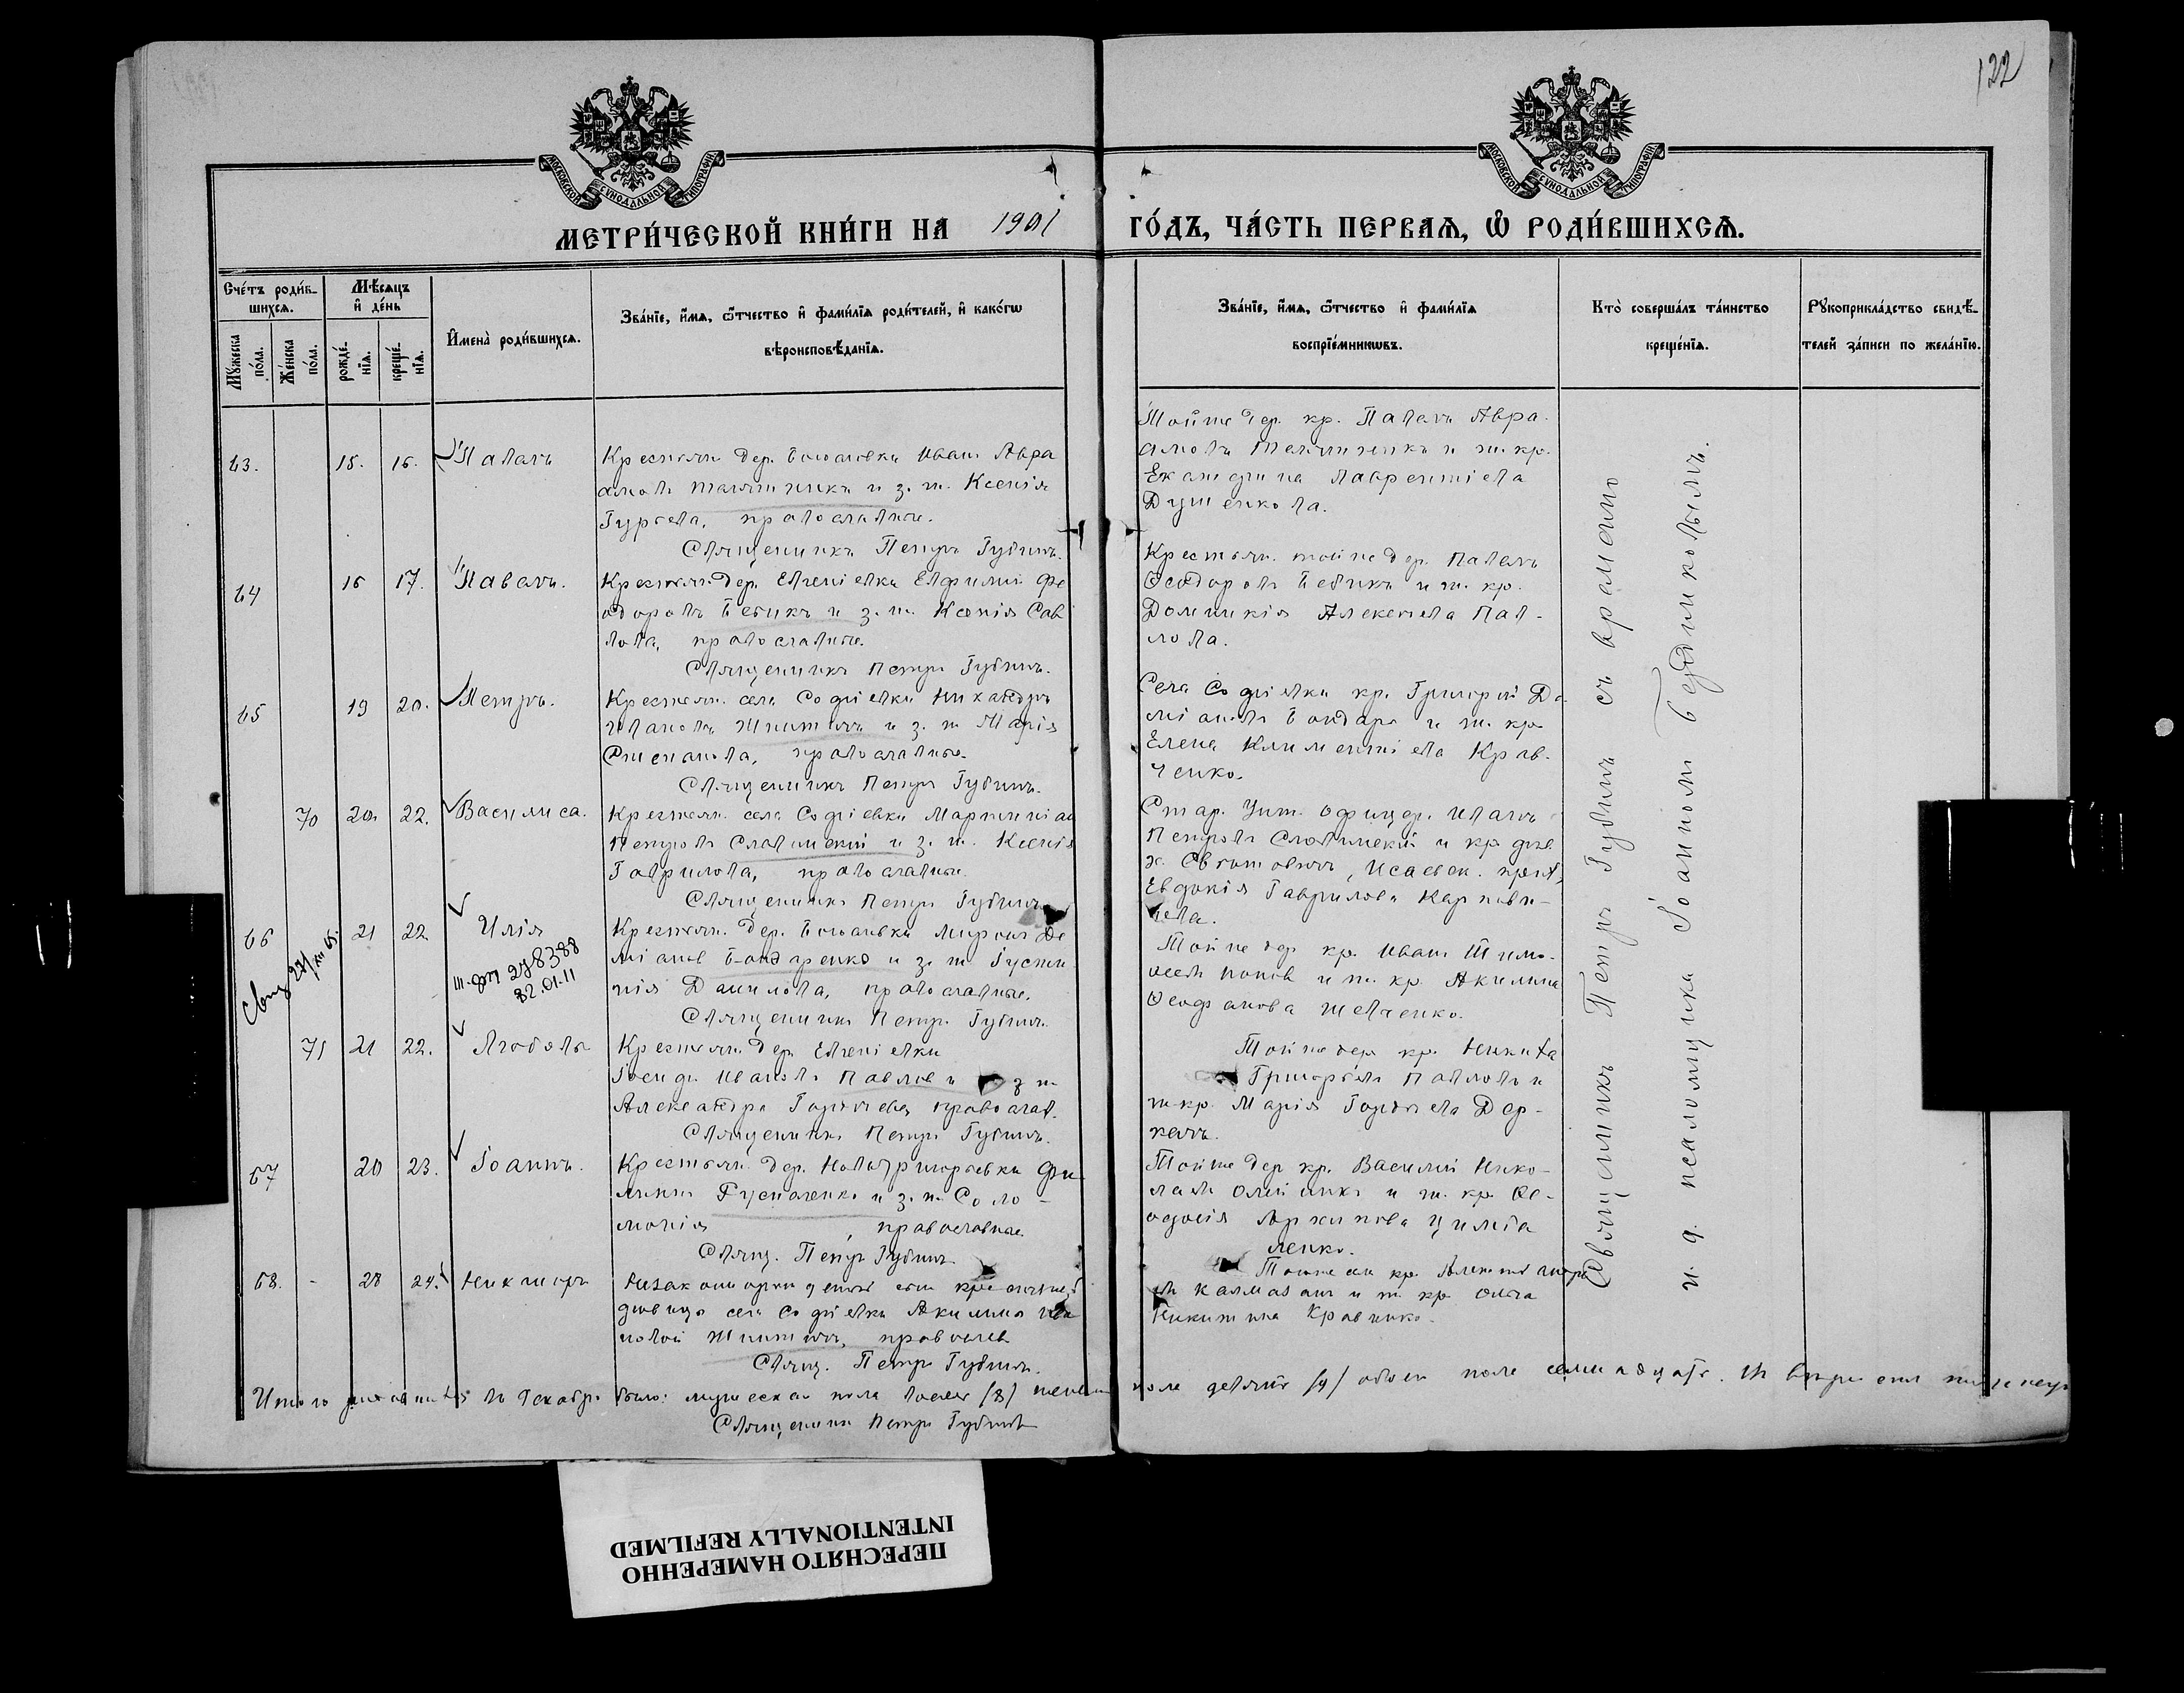 122
МОСКОВСКОЙ СѴНОДАЛЬНОЙ ТИПОГРАФІИ
МОСКОВСКОЙ СѴНОДАЛЬНОЙ ТИПОГРАФІИ
МЕТРИ́ЧЕСКОЙ КНИ́ГИ НА 1901 ГО́ДЪ, ЧА́СТЬ ПЕРВАѦ, Ѡ҆ РОДИ́ВШИХСѦ.
Сче́тъ роди́в-
шихсѧ.
Мꙋ́жеска по́ла.
Же́нска по́ла.
Мѣ́сѧцъ
и҆ де́нь
рожде́-
нїѧ.
креще́-
нїѧ.
И҆мена̀ роди́вшихсѧ.
Зва́нїе, и҆́мѧ, ѻ҆́тчество и҆ фами́лїѧ роди́телей, и҆ како́гѡ
вѣроисповѣ́данїѧ.
Зва́нїе, и҆́мѧ, ѻ҆́тчество и҆ фами́лїѧ
воспрїе́мникѡвъ.
Кто̀ соверша́лъ та́инство
креще́нїѧ.
Рꙋкоприкла́дство свидѣ́-
телей за́писи по жела́нїю.
63. 15. 16. Павелъ
Крестьян. дер. Богдановки Иванъ Авра
амовъ и з. ж. Ксенія
Гурьева, православные.
Священникъ Петръ Губинъ.
Тойже дер. кр. Павелъ Авра-
амовъ и ж. кр.
Екатерина Лаврентіева
Душенкова.
64 16 17. Павелъ.
Крестьян. дер. Евгеніевки Евфимій Ѳе
одоровъ Бебикъ и з. ж. Ксенія Сав
лова, православные.
Священникъ Петръ Губинъ.
Крестьян. тойже дер. Павелъ
Ѳеодоровъ Бебикъ и ж. кр.
Домникія Алексѣева Пав-
лова.
65 19 20. Петръ.
Крестьян. села Софіевки Никандръ
Ивановъ Шпитяк и з. ж Марія
Степанова, православные.
Священникъ Петръ Губинъ.
Села Софіевки кр. Григорій Да
міановъ Бондарь и ж. кр
Елена Климентіева Крав-
ченко.
70 20. 22. Василиса.
Крестьян. села Софіевки Мартиніан
Петровъ Славинскій и з. ж. Ксенія
Гаврилова, православные.
Священникъ Петръ Губинъ
Стар. Унт. офицер. Иванъ
Петровъ Славинскій и кр
Исаевск.
Евдокія Гаврилова Карпови-
чева.
66 21 22 Илія
Крестьян. дер. Богдановки Миронъ Да
міанов Бондаренко и з. ж Густи
нія Данилова, православные.
Священникъ Петръ Губинъ.
Тойже дер кр. Иванъ Тимо-
ѳеевъ Попов и ж. кр. Акилина
Ѳеофанова Шевченко.
278388
82.01.11
71 21 22. Любовь
Крестьян. дер. Евгеніевки
Іосифъ Ивановъ Павлов и з ж
Александра Гордѣева православ.
Священникъ Петръ Губинъ.
Тойже дер кр. Никита
Григорьевъ Павловъ и
ж кр. Марія Гордѣева Дер-
качъ.
67 20 23. Іоаннъ.
Крестьян. дер. Новогригорьевки Фи
липпъ Русначенко и з. ж. Соло-
монія , православные.
Свящ. Петръ Губинъ
Тойже дер кр. Василій Нико-
лаевъ Олійникъ и ж. кр. Ѳе-
одосія Архипова Цимба
ленко.
68. - 28 24. Никаноръ
сын крестьянск
дѣвицы села Софіевки Акилины Ива
новой Шпитяк, православ
Свящ. Петръ Губинъ.
Тойже сел кр. Александр
Калмазан и ж кр Ольга
Никитина Кравченко.
Священникъ Петръ Губинъ съ
и. д. псаломщика Іоанном Бедриковымъ.
Итого родившихся въ декабрѣ было: мужеска пола восемь (8) женска пола девять (9) обоего пола семнадцать.
Священникъ Петръ Губинъ
ПЕРЕСНЯТО НАМЕРЕННО
INTENTIONALLY REFILMED